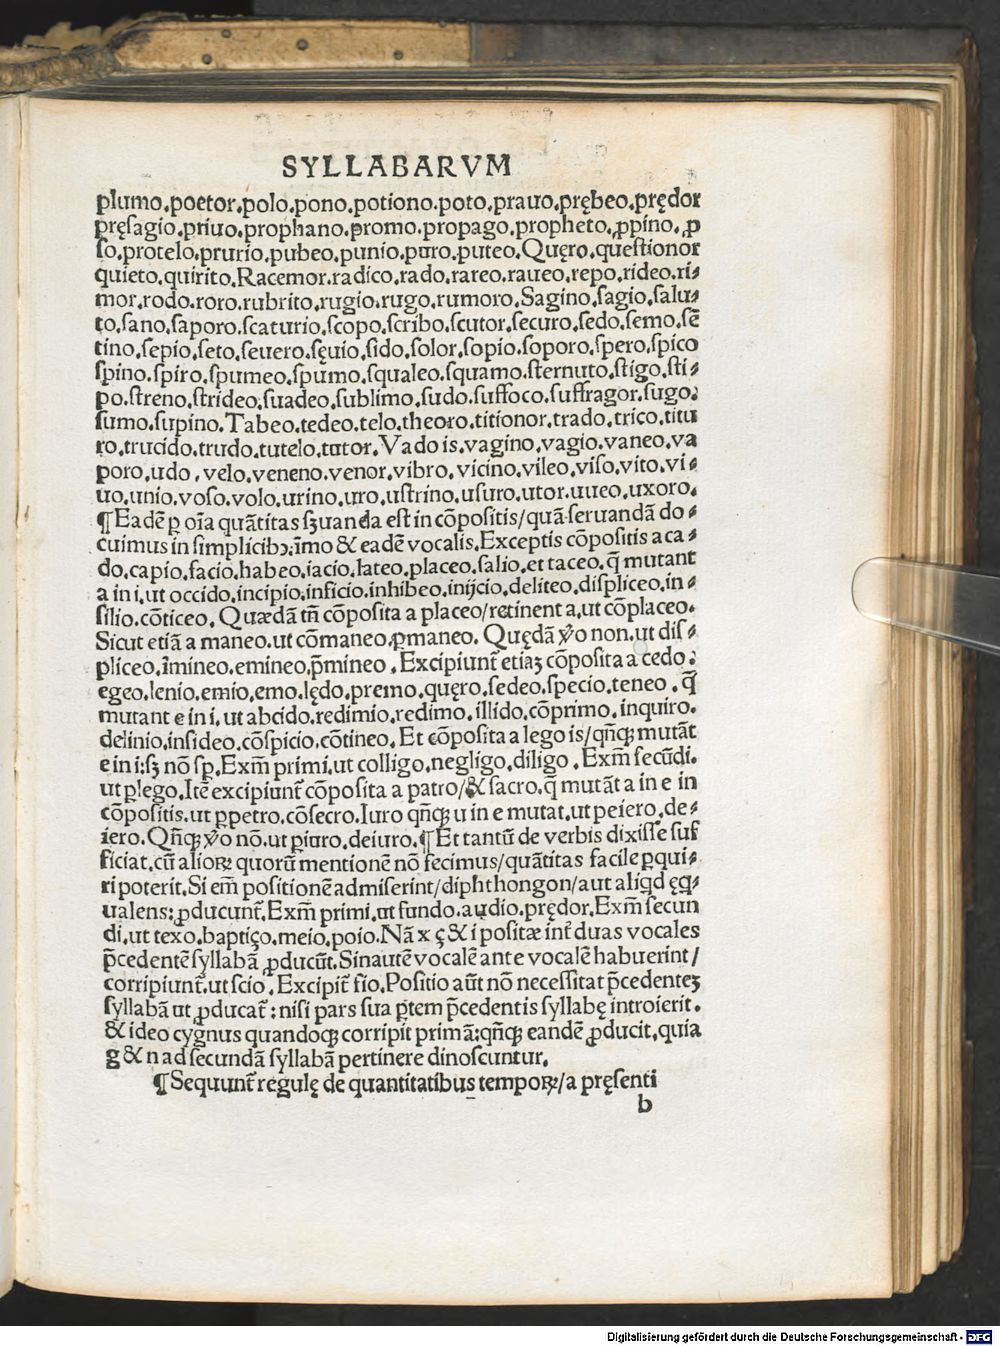 SYLLABARVM
plumo.poetor.polo.pono.potiono.poto.prauo.prębeo.prędor
pręsagio.priuo.prophano.promo.propago.propheto.ꝓpino.ꝓ
ſo.protelo.prurio.pubeo.punio.puro.puteo.Quęro.queſtionor
quieto.quirito.Racemor.radico.rado.rareo.raueo.repo.rideo.ri⸗
mor.rodo.roro.rubrito.rugio.rugo.rumoro.Sagino.ſagio.ſalu⸗
to.ſano.ſaporo.ſcaturio.ſcopo.ſcribo.ſcutor.ſecuro.ſedo.ſemo.ſē
tino.ſepio.ſeto.ſeuero.ſęuio.ſido.ſolor.ſopio.ſoporo.ſpero.ſpico
ſpino.ſpiro.ſpumeo.ſpumo.ſqualeo.ſquamo.ſternuto.ſtigo.ſti⸗
po.ſtreno.ſtrideo.ſuadeo.ſublimo.ſudo.ſuffoco.ſuffragor.ſugo.
ſumo.ſupino.Tabeo.tedeo.telo.theoro.titionor.trado.trico.titu
ro.trucido.trudo.tutelo.tutor.Vado is.vagino.vagio.vaneo.va
poro.udo.velo.veneno.venor.vibro.vicino.vileo.viſo.vito.vi⸗
uo.unio.voſo.volo.urino.uro.uſtrino.uſuro.utor.uueo.uxoro.
¶Eadē ꝑ oīa quātitas ſꝫuanda eſt in cōpoſitis/quā ſeruandā do⸗
cuimus in ſimplicibꝰ:īmo & eadē vocalis.Exceptis cōpoſitis a ca⸗
do.capio.facio.habeo.iacio.lateo.placeo.ſalio.et taceo.q̄ mutant
a in i.ut occido.incipio.inficio.inhibeo.inijcio.deliteo.diſpliceo.in⸗
ſilio.cōticeo.Quædā tn̄ cōpoſita a placeo/retinent a.ut cōplaceo.
Sicut etiā a maneo.ut cōmaneo.ꝑmaneo. Quędā ꝟo non.ut diſ⸗
pliceo.īmineo.emineo.p̄mineo.Excipiunt᷑ etiaꝫ cōpoſita a cedo.
egeo.lenio.emio.emo.lędo.premo.quęro.ſedeo.ſpecio.teneo.q̄
mutant e in i.ut abcido.redimio.redimo.illido.cōprimo.inquiro.
delinio.inſideo.cōſpicio.cōtineo.Et cōpoſita a lego is/qn̄qꝫ mutāt
e in i:ſꝫ nō ſꝑ.Exm̄ primi.ut colligo.negligo.diligo.Exm̄ ſecūdi.
ut ꝑlego.Itē excipiunt᷑ cōpoſita a patro/& ſacro.q̄ mutāt a in e in
cōpoſitis.ut ꝑpetro.cōſecro.Iuro qn̄qꝫ u in e mutat.ut peiero.de⸗
iero.Qn̄qꝫ ꝟo nō.ut ꝑiuro.deiuro.¶Et tantū de verbis dixiſſe ſuf
ficiat.cū alioꝝ quorū mentionē nō fecimus/quātitas facile ꝑqui⸗
ri poterit.Si em̄ poſitionē admiſerint/diphthongon/aut aliqd ęq⸗
ualens:ꝓducunt᷑.Exm̄ primi.ut fundo.audio.prędor.Exm̄ ſecun
di.ut texo.baptiço.meio.poio.Nā x ç & i poſitæ int᷑ duas vocales
p̄cedentē ſyllabā ꝓducūt.Sinautē vocalē ante vocalē habuerint/
corripiunt᷑.ut ſcio.Excipit᷑ fio.Poſitio aūt nō neceſſitat p̄cedenteꝫ
ſyllabā ut ꝓducat᷑:niſi pars ſua ꝑtem p̄cedentis ſyllabę introierit.
& ideo cygnus quandoqꝫ corripit primā:qn̄qꝫ eandē ꝓducit.quia
g & n ad ſecundā ſyllabā pertinere dinoſcuntur.
¶Sequunt᷑ regulę de quantitatibus tempoꝝ/a pręſenti
b
Digitalisierung gefördert durch die Deutsche Forschungsgemeinschaft - DFG